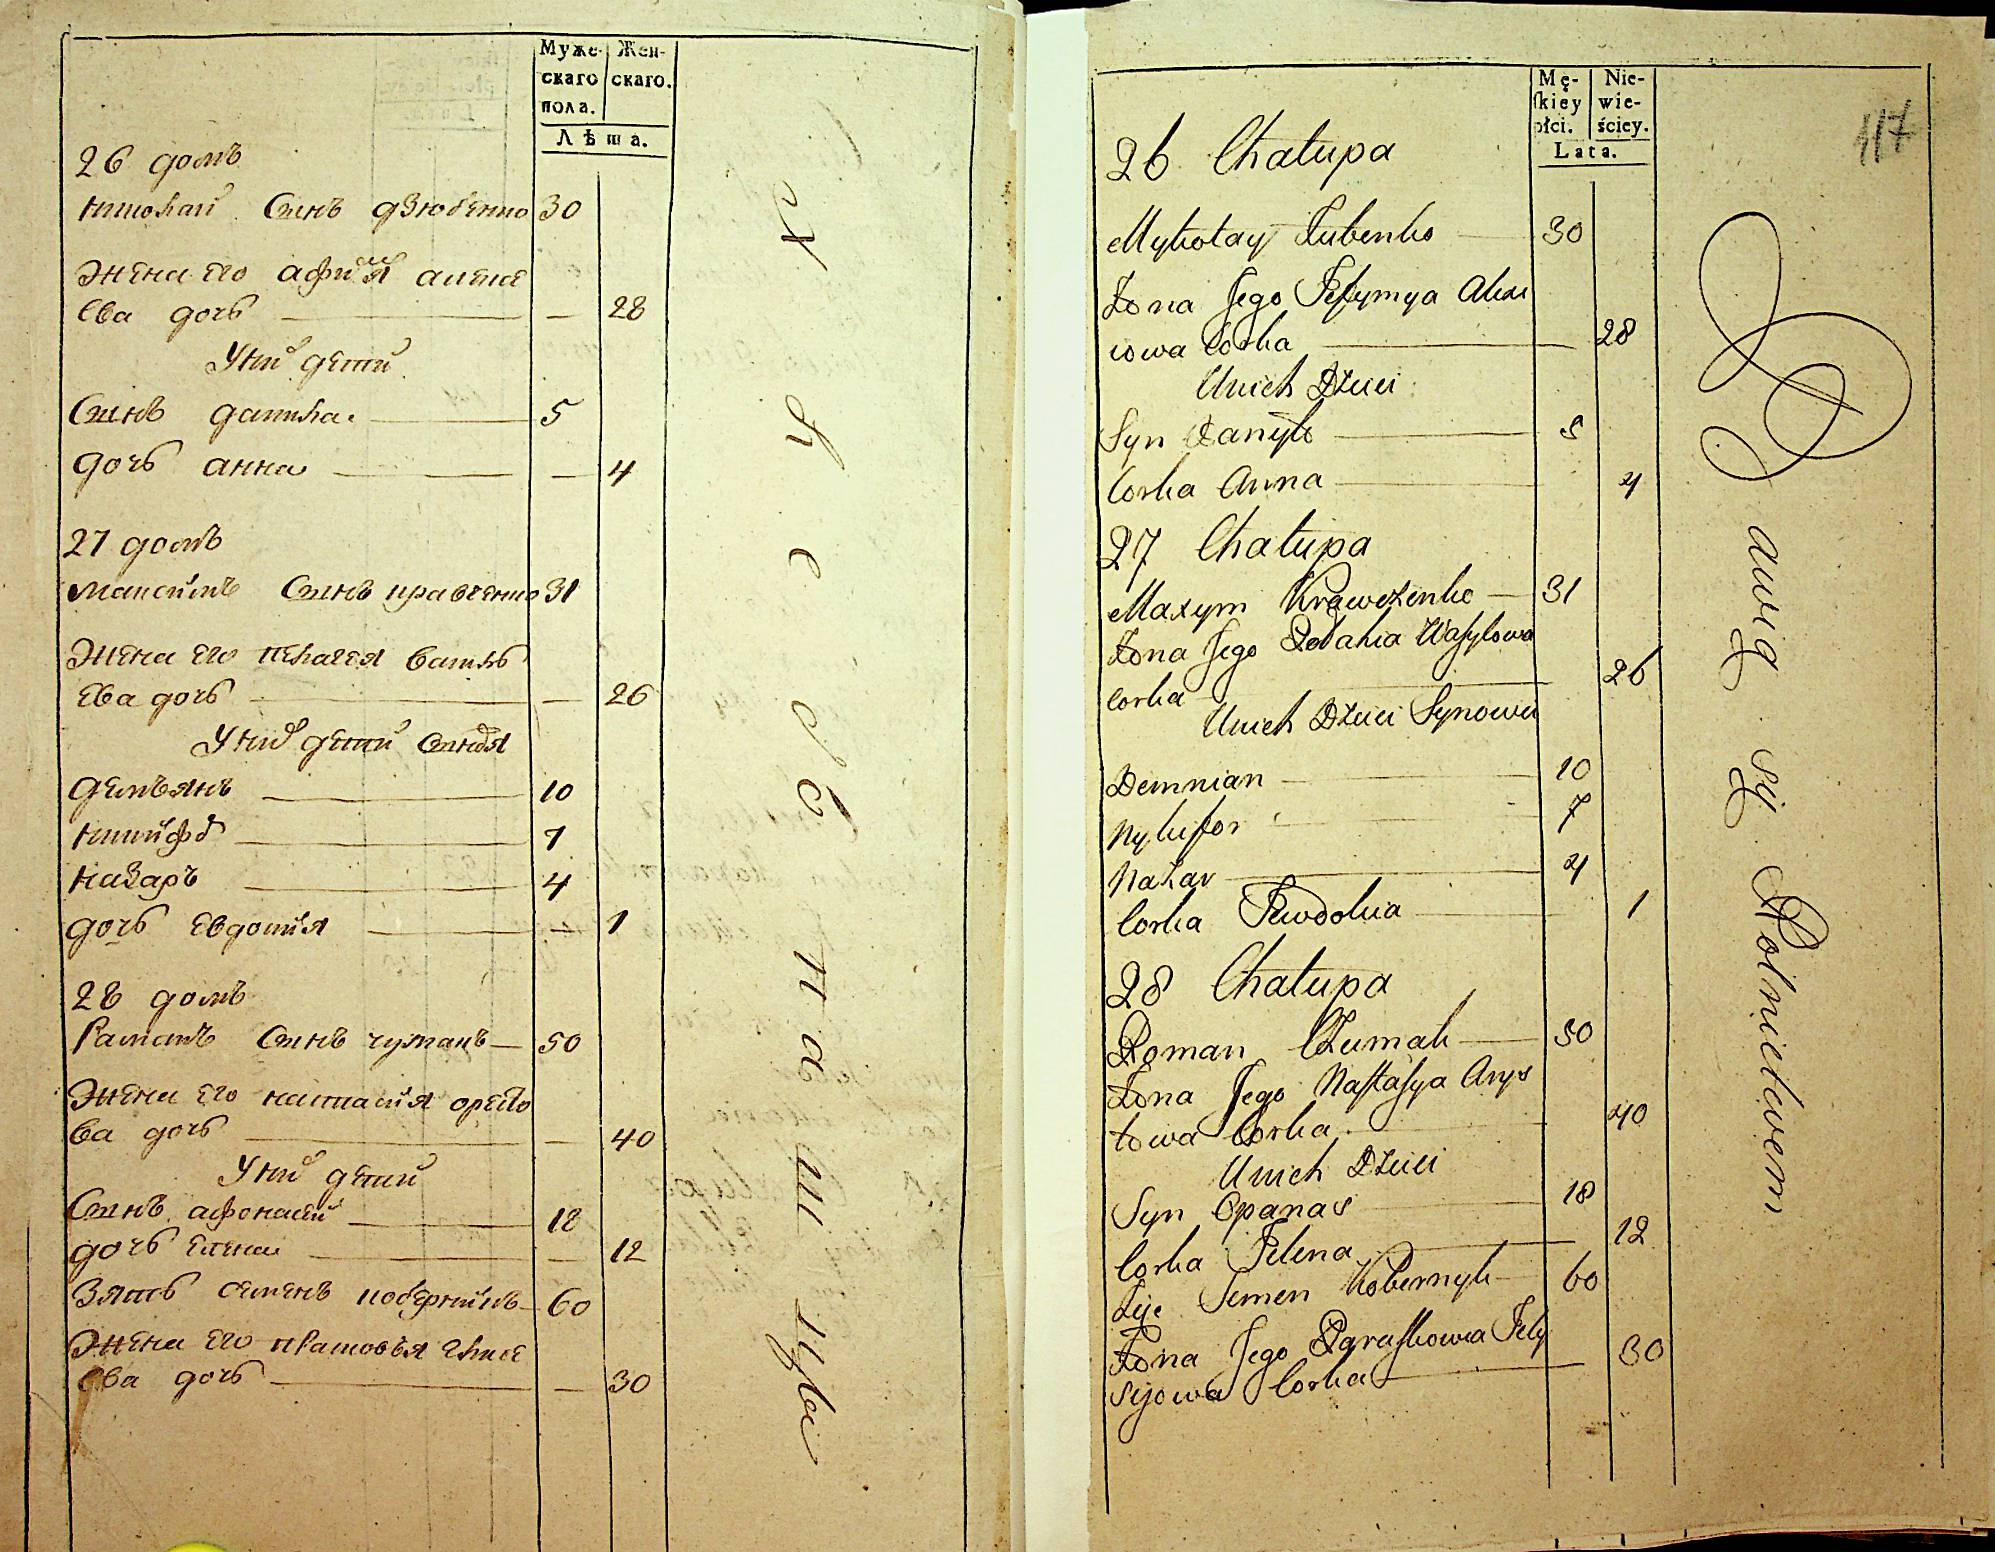 Муже- Жен-
скаго скаго.
пола.
Лѣта.
26 домъ
николай Синъ дзюбенко 30
Жена его афимия алексе
ева дочь — 28
У них дети
Синъ данила 5
дочь анна — 4
27 домъ
максимъ Синъ кравченко 31
Жена его пелагея василь
ева дочь — 26
У них дети Синовя
демъянъ 10
никифор 7
назаръ 4
дочь евдокия — 1
28 домъ
Раманъ Синъ чумакъ 50
Жена его настасия
ва дочь — 40
У них дети
Синъ афонасей 18
дочь елена — 12
Зять семенъ коберникъ 60
Жена его
ева дочь — 30
Mę- Nie-
skiey wie-
płci. ściey.
Lata.
117
26 Chałupa
Mykołay Zubenko 30
Żona Jego Jefymya Alexi
iowa Corka 28
Unich Dzieci
Syn Danyło 5
Corka Anna 4
27 Chałupa
Maxym Krawczenko 31
Żona Jego Wasylowa
corka 26
Unich Dzieci Synowie
Demnian 10
Nykifor 7
Nazar 4
Corka Jewdokia 1
28 Chałupa
Roman Czumak 50
Żona Jego Nastasya Arys
towa Corka 40
Unich Dzieci
Syn Opanas 18
Corka Jelena 12
Zię Semen Kobernyk 60
Żona Jego Paraskowia Jely
sijowa Corka 30
Bawią się Rolnictwem